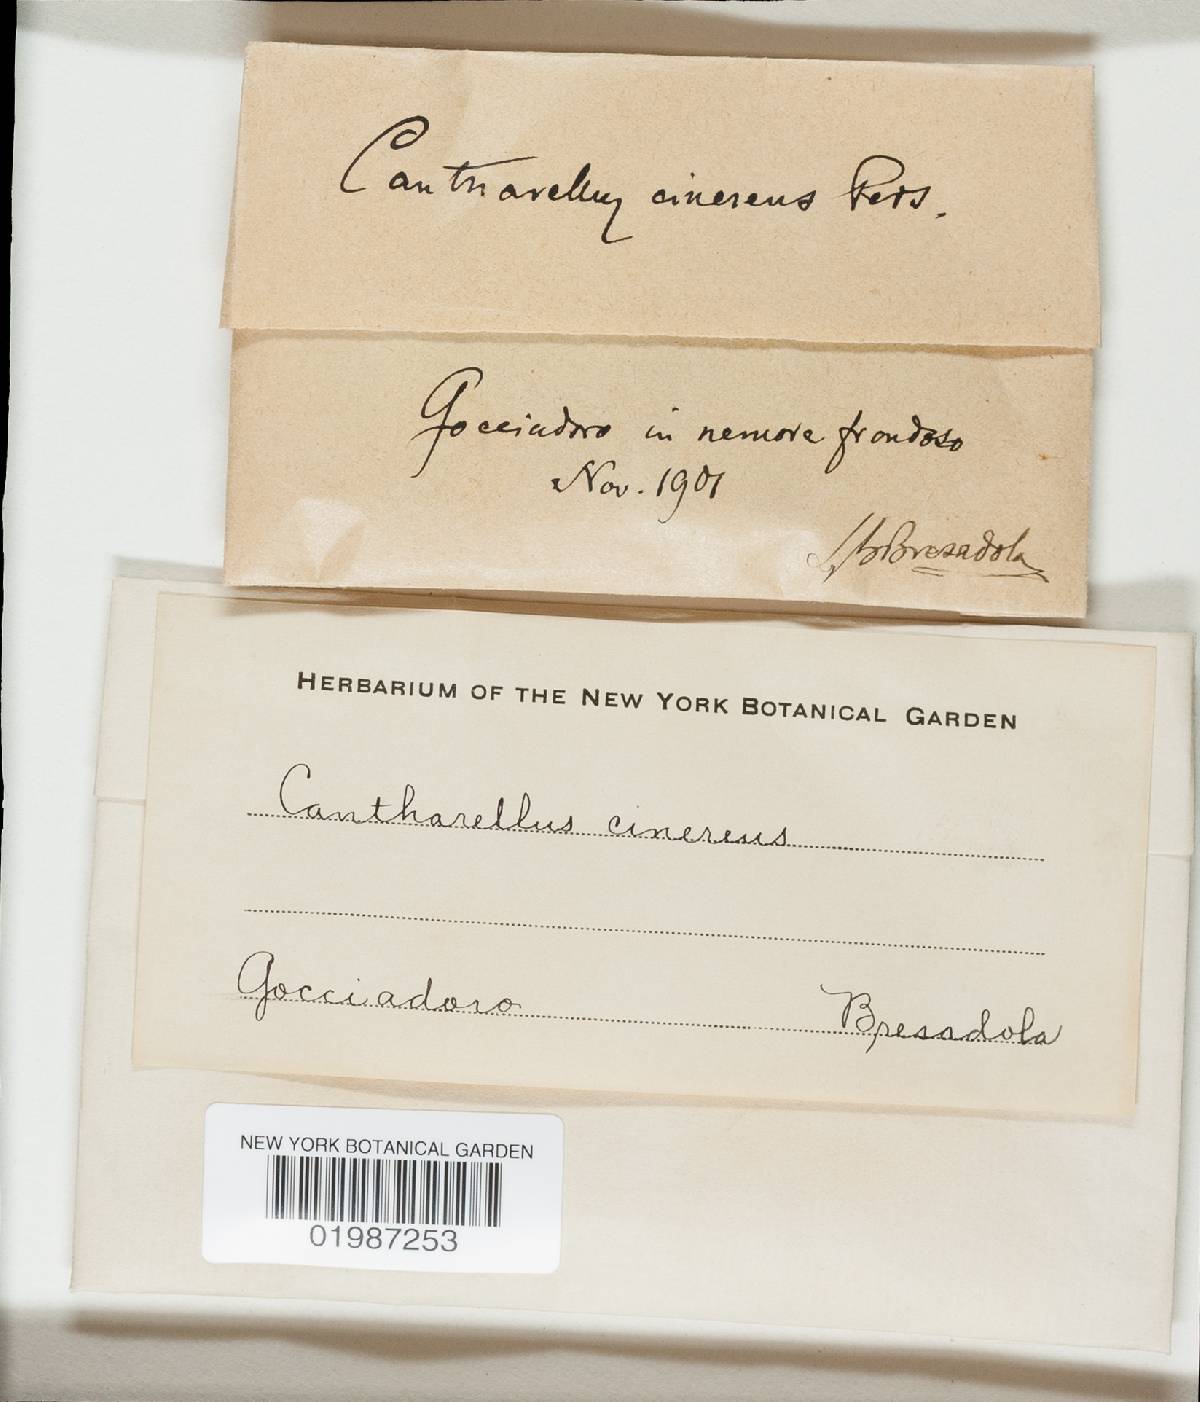 Cantharellus cinereus Pers.
Gocciadoro in nemore frondoso
Nov. 1901
Bresadola
HERBARIUM OF THE NEW YORK BOTANICAL GARDEN
Cantharellus cinereus
Gocciadoro Bresadola
NEW YORK BOTANICAL GARDEN
01987253